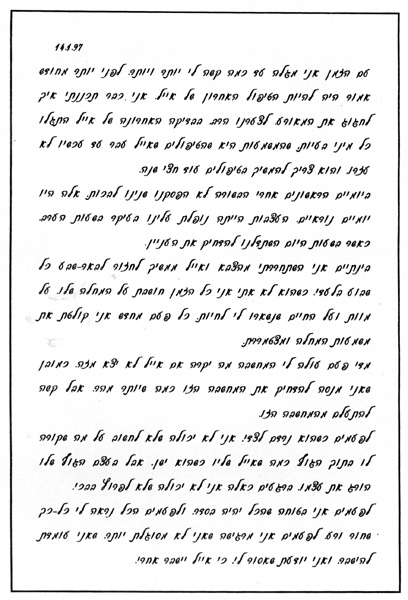 14.1.97
עם הזמן אני מגלה עד כמה קשה לי יותר ויותר. לפני יותר מחודש
אמור היה להיות הטיפול האחרון של אייל. אני כבר תכננתי איך
לחגוג את המאורע. לצערנו הרב, בבדיקה האחרונה של אייל התגלו
כל מיני בעיות שהמשמעות היא שהטיפולים שאייל עבר עד עכשיו לא
עזרו, והוא צריך להמשיך בטיפולים עוד חצי שנה.
ביומיים הראשונים אחרי הבשורה לא הפסקנו שנינו לבכות. אלה היו
יומיים נוראיים. העצבות הייתה נופלת עלינו בעיקר בשעות הערב,
כאשר בשעות היום השתדלנו להדחיק את העניין.
בינתיים אני השתחררתי מהצבא ואייל ממשיך לחזור לבאר-שבע כל
שבוע בלעדי. כשהוא לא אתי אני כל הזמן חושבת על המחלה שלו, על
מוות ועל החיים שנשארו לי לחיות. כל פעם מחדש אני קולטת את
משמעות המחלה ומצטמררת.
מדי פעם עולה לי המחשבה מה יקרה אם אייל לא יצא מזה. כמובן
שאני מנסה להדחיק את המחשבה הזו כמה שיותר מהר, אבל קשה
להתעלם מהמחשבה הזו.
לפעמים כשהוא נרדם לצדי, אני לא יכולה שלא לחשוב על מה שקורה
לו בתוך הגוף. כמה שאייל שליו כשהוא ישן, אבל בעצם הגוף שלו
הורג את עצמו. ברגעים כאלה אני לא יכולה שלא לפרוץ בבכי.
לפעמים אני בטוחה שהכל יהיה בסדר, ולפעמים הכל נראה לי כל-כך
שחור ורע. לפעמים אני מרגישה שאני לא מסוגלת יותר, שאני עומדת
להישבר. ואני יודעת שאסור לי, כי אייל יישבר אחרי.